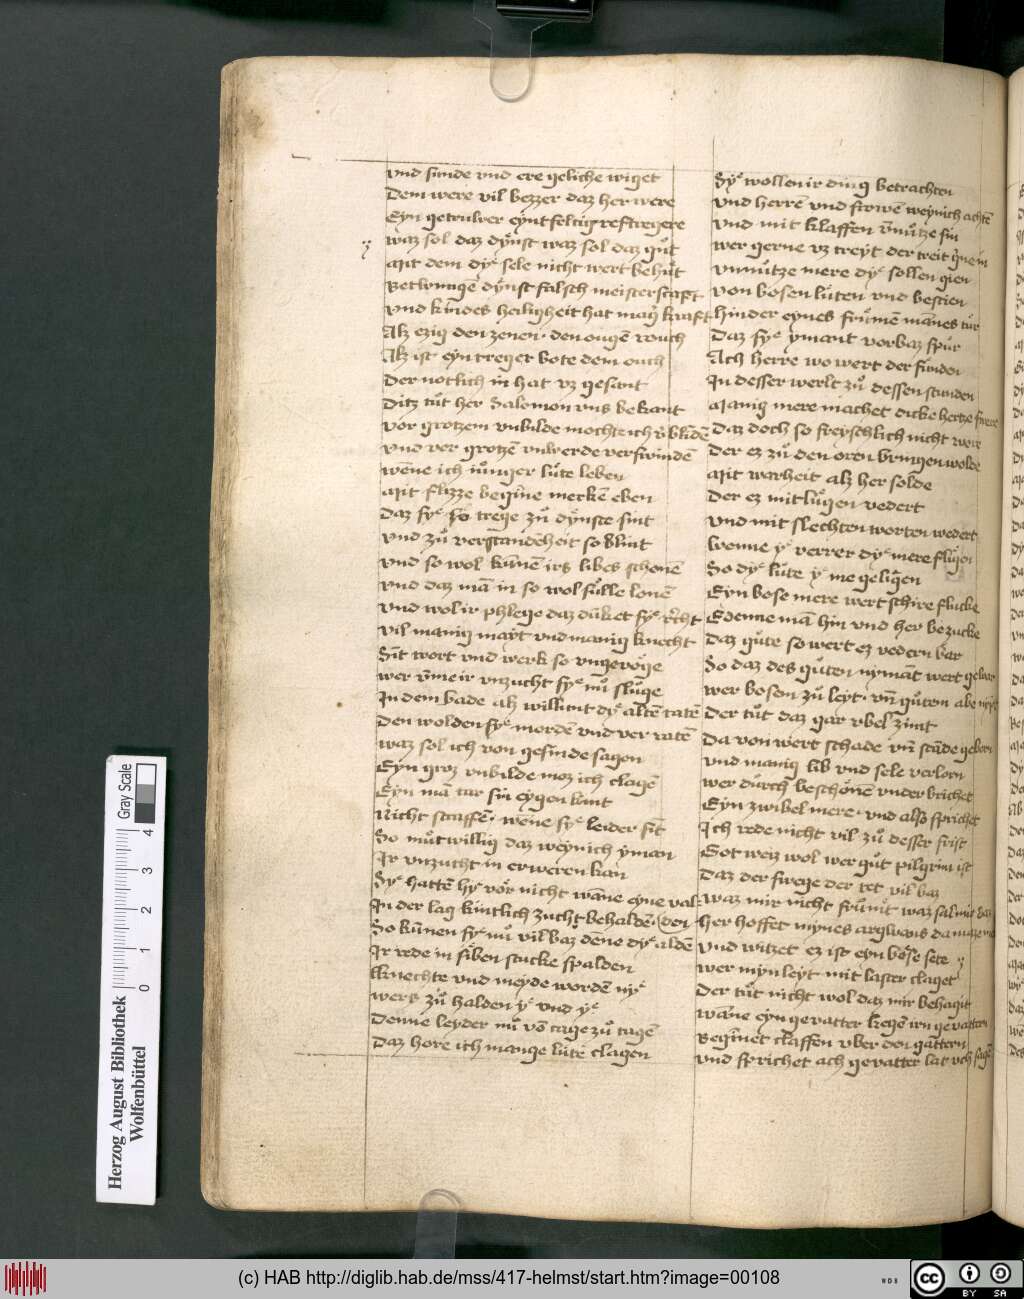 vnd sunde vnd ere geliche wiget
Dem were vil bezzer daz her were
Eyn getruwer eyntfeltig reftregere
waz sol daz dynst waz sol daz gůt
Mit dem dye sele nicht wert behůt
Betwungē dynst falsch meisterscaft
vnd kindes heiligheit hat maġ kraft
Alz ezig den zenen · den ougē rouch
Alz ist eyn treger bote dem ouch
Der notlich in hat vz gesant
Ditz tůt her Salomon vns bekant
Vor grotzem vnbilde mochte ich v̓blīdē
vnd vor grotzē vnwerde verswindē
wēne ich iůnger lůte leben
Mit flizze begīne merkē eben
Daz sye so trege zů dynste sint
vnd zů verstandēheit so blint
vnd so wol kūnē irs libes schonē
vnd daz mā in so wol sůlle lonē
vnd wol ir phlege daz dūket sye recht
Vil manig mayt vnd manig knecht
Sīt wort vnd werk so vngevoge
wer vmme ir vnzucht sye nů sluge
In dem bade als willunt dye altē tatē
Den wolden sye mordē vnd ver ratē
waz sol ich von gesinde sagen
Eyn groz vnbilde moz ich clagē
Eyn mā tar sin eygen kint
Nicht straffē · wēne sye leider sīt
So můtwillig daz weynich yman
Ir vnzucht in erweren kan
Sye hattē hye vor nicht wāne eyne val
In der lag kintlich zucht behaldē
So kūnen sye nů vil baz dēne dye aldē
Ir rede in siben stucke spalden
knechte vnd meyde wordē nye
werg zů halden ye vnd ye
Denne leyder nů vō tage zů tagē
Daz hore ich mange lute clagen
Sye wollen ir ding betrachten
vnd herrē vnd frowē weynich achtē
vnd mit klaffen v̄nůtze sin
wer gerne vz treyt der treit gerne in
vnnůtze mere dye sollen gien
von bosen lůten vnd bestien
hinder eynes frůmē mānes tůr
Daz sye ymant vorbaz spůr
Ach herre wo wert der funden
In desser werlt zů dessen stunden
Manig mere machet dicke hertze swere
Daz doch so freyschlich nicht were
Der ez zů den oren bringen wolde
Mit warheit alz her solde
Der ez mit lůgen vedert
vnd mit slechten worten wedert
wenne ye verrer dye mere flůgen
So dye lute ye me geligen
Eyn bose mere wert schire flucke
Wenne mā hin vnd her bezucke
Daz gůte so wert ez vedern bar
So daz des gůten nymāt wert gewar
wer bosen zů leyt · vn̄ gůtem abe nympt
Der tůt daz gar vbel zimt
Da von wert schade vn̄ scāde geborn
vnd manig lib vnd sele verlorn
wer durch beschonē vnder brichet
Eyn zwibel mere · vnd also sprichet
Ich rede nicht vil zů desser frist
Got weiz wol wer gůt pilgrim ist
Daz der swege der tet vil baz
waz mir nicht frūmt waz sal mir daz
her hoffet mynes argwans
vnd witzet ez ist eyn bose sete
wer myn leyt mit laster claget
Der tůt nicht wol daz mir behagit
wāne eyn gevatter kegē irn gevattern
Begīnet claffen vber den gattern
vnd sprichet ach gevatter lat vch sagē
Herzog August Bibliothek
Wolfenbüttel
Gray Scale
0 1 2 3 4
(c) HAB http://diglib.hab.de/mss/417-helmst/start.htm?image=00108
WDB
cc
BY SA